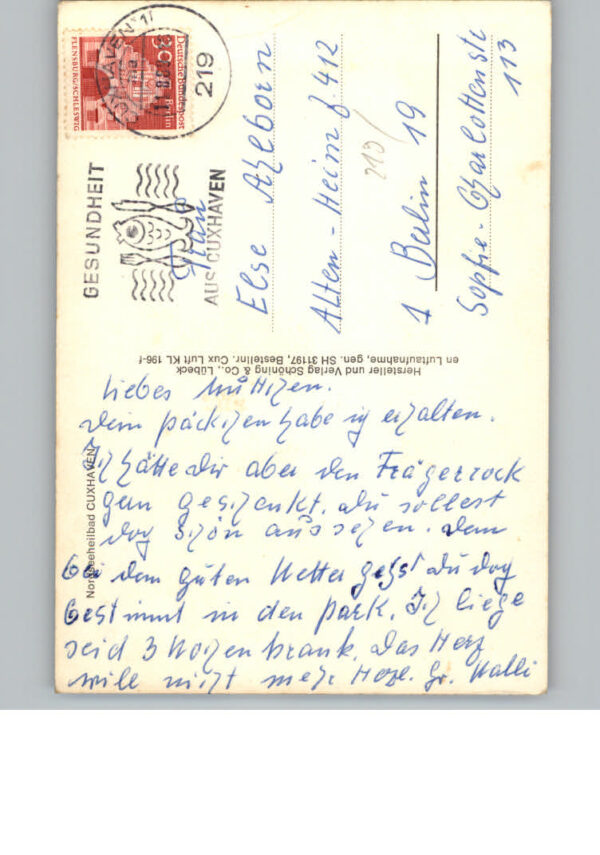 Liebes Muttchen.
Dein päckchen habe ich erhalten.
Ich hätte dir aber den Trägerrock
gern geschenkt. du solltest
doch schön aussehen. denn
bei dem guten Wetter gehst du doch
bestimmt in den park. Ich liege
seid 3 Wochen krank. das Herz
will nicht mehr Herzl. Gr. Walli
Frau
Else Ahlborn
Alten-Heim f. 412
1 Berlin 19
Sophie-Charlottenstr
113
219
GESUNDHEIT
AUS CUXHAVEN
Deutsche Bundespost
Berlin
FLENSBURG/SCHLESWIG
Nordseeheilbad CUXHAVEN
Hersteller und Verlag Schöning & Co., Lübeck
en Luftaufnahme, gen. SH 31197, Bestellnr. Cux Luft KL 196-f